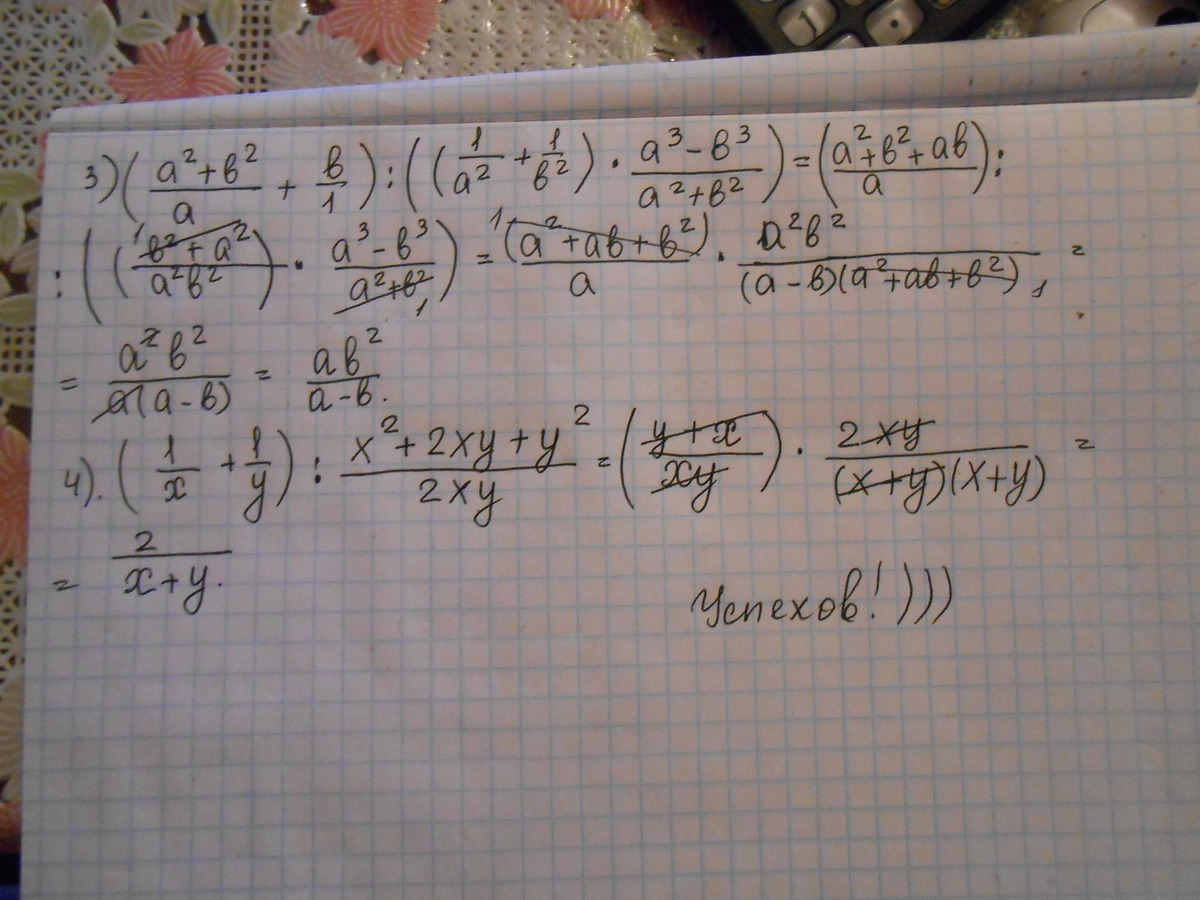 3) ( (a² + в²)/a + в/1 ) : ( ( 1/a² + 1/в² ) · (a³ - в³)/(a² + в²) ) = ( (a² + в² + aв)/a ) :
: ( ( (в² + a²)/(a²в²) ) · (a³ - в³)/(a² + в²) ) = (a² + aв + в²)/a · a²в²/((a - в)(a² + aв + в²)) =
= a²в²/(a(a - в)) = aв²/(a - в).
4). ( 1/x + 1/y ) : (x² + 2xy + y²)/(2xy) = ( (y + x)/(xy) ) · 2xy/((x+y)(x+y)) =
= 2/(x + y).
Успехов!)))